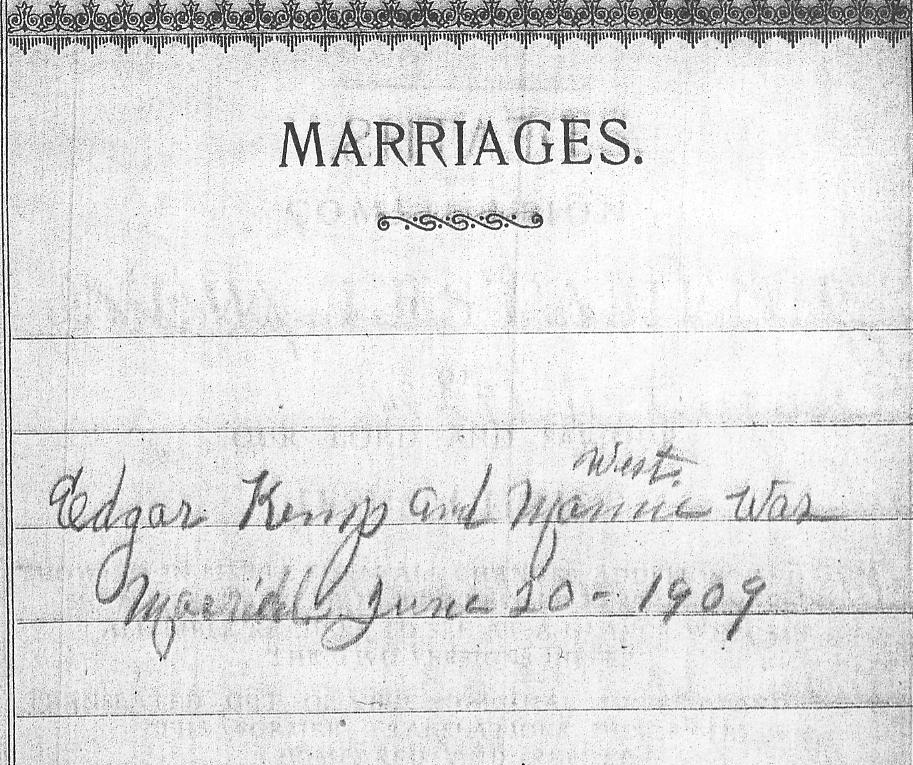 MARRIAGES.
West
Edgar Kemp and Mannie Was
Married June 20 - 1909